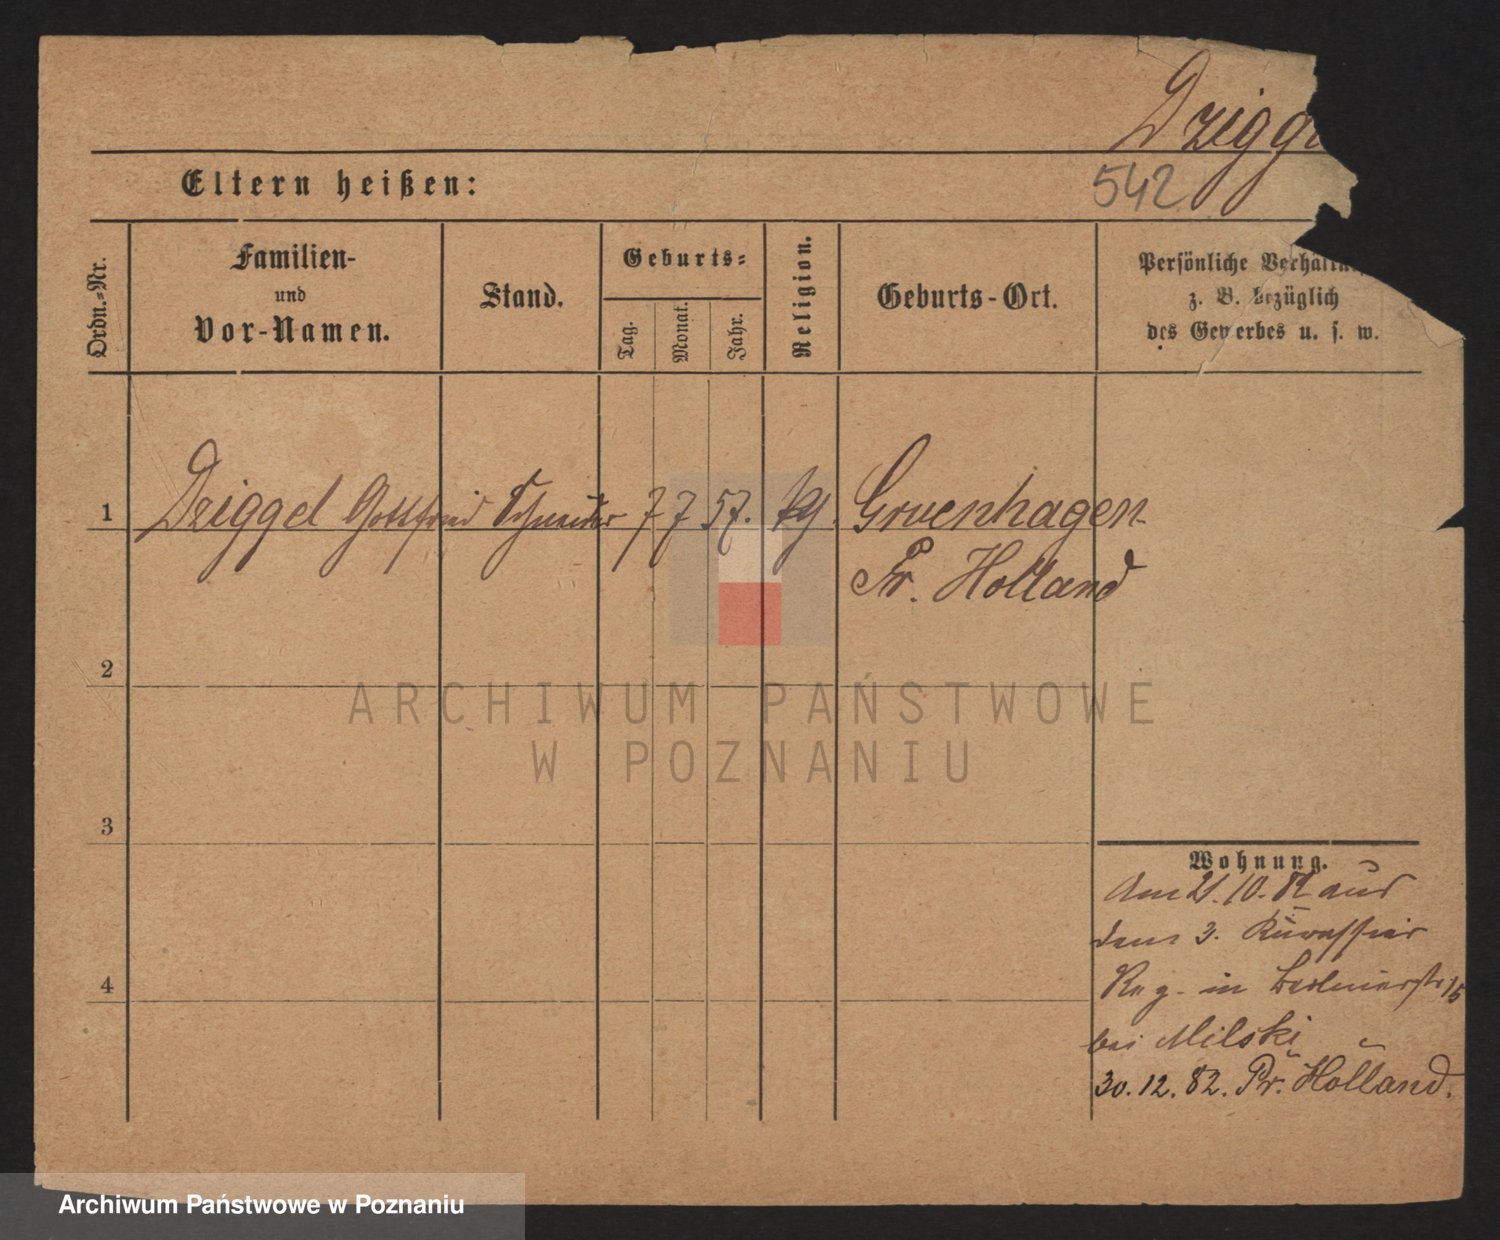 Dzigge
Eltern heißen:
542
Ordn.-Nr.
Familien-
und
Vor-Namen.
Stand.
Geburts-
Tag.
Monat.
Jahr.
Religion.
Geburts-Ort.
Persönliche Verhältn
z. B. bezüglich
des Gewerbes u. s. w.
1 Dziggel Gottfried Schneider 7 7 57. Gruenhagen
Pr. Holland
2
3
4
Wohnung.
Am 21.10.82 aus
dem 3. Kürassier
Reg. in Berlinerstr 15
bei Milski
30.12.82. Pr. Holland.
ARCHIWUM PAŃSTWOWE
W POZNANIU
Archiwum Państwowe w Poznaniu